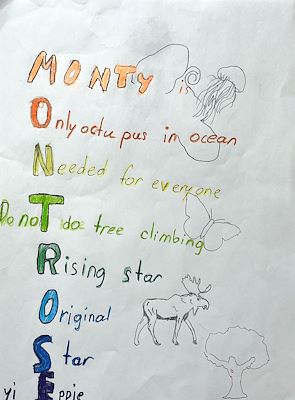 MONTY is
Only octupus in ocean
Needed for everyone
Do not do tree climbing
Rising star
Original
Star
yi Eppie